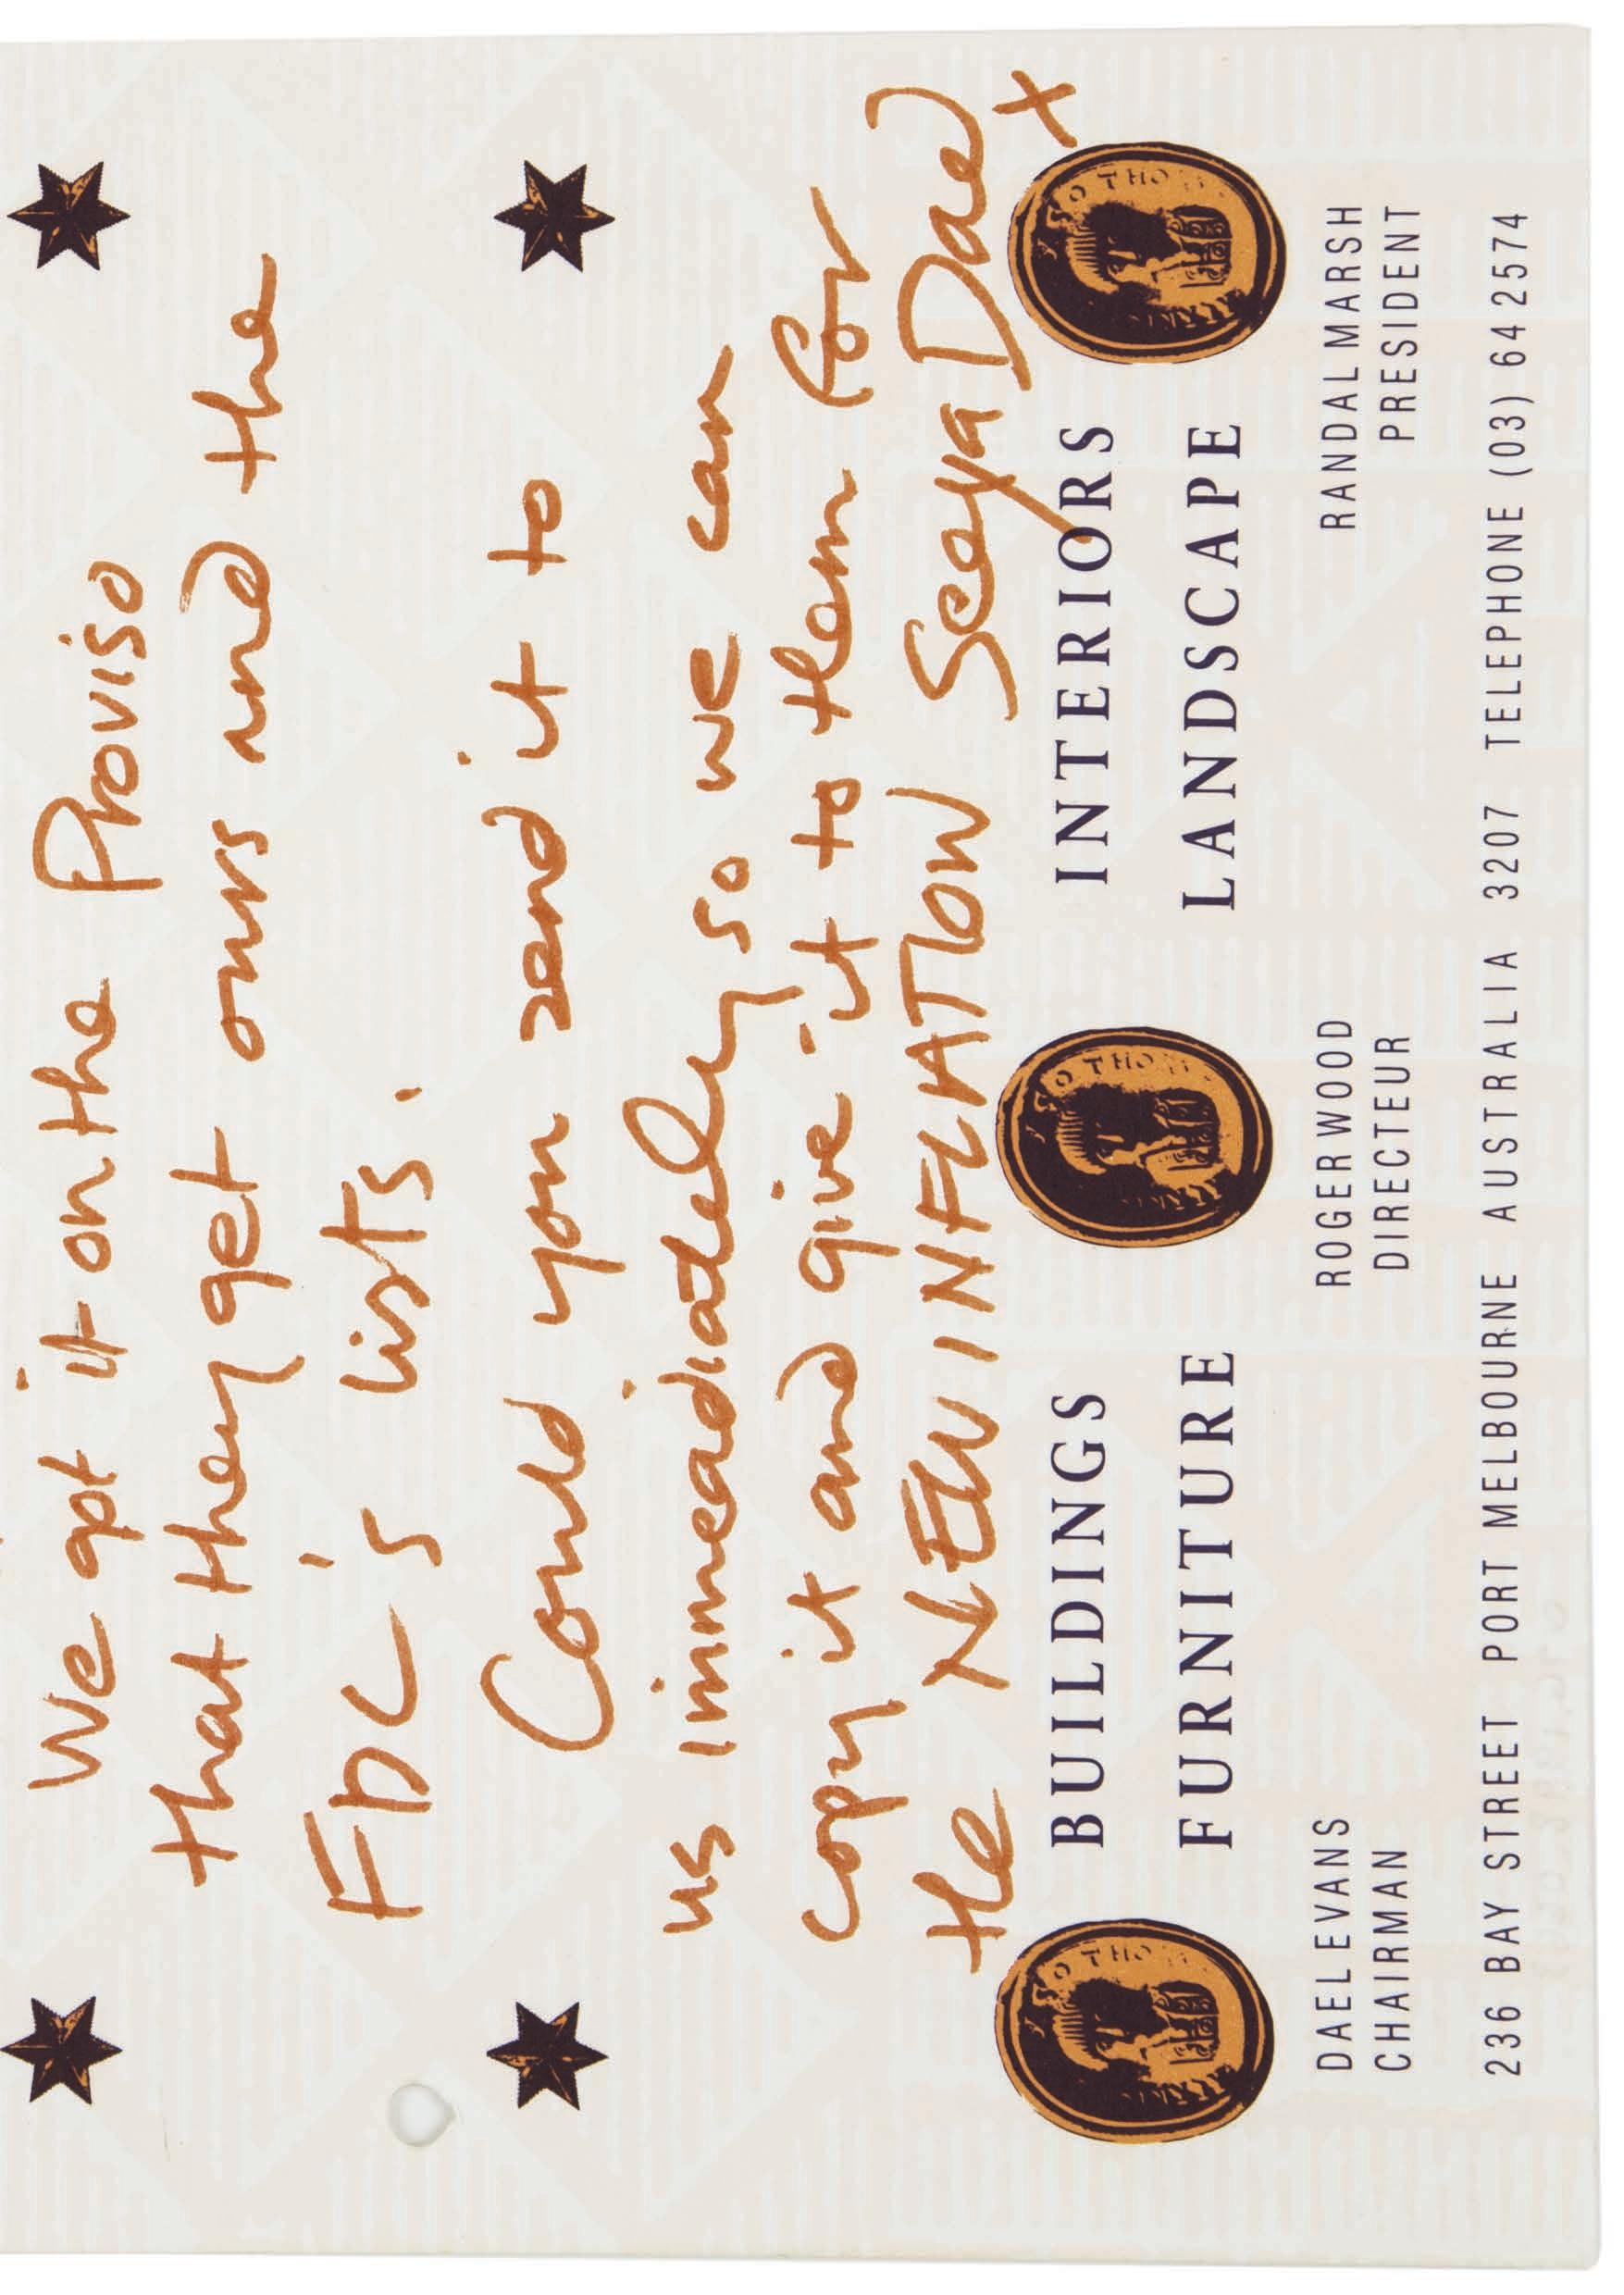 We got it on the Proviso
that they get ours and the
FDC's lists.
Could you send it to
us immeadiately so we can
copy it and give it to them for
the NEW INFLATION Seeya Dael x
BUILDINGS INTERIORS
FURNITURE LANDSCAPE
DAEL EVANS ROGER WOOD RANDAL MARSH
CHAIRMAN DIRECTEUR PRESIDENT
236 BAY STREET PORT MELBOURNE AUSTRALIA 3207 TELEPHONE (03) 64 2574